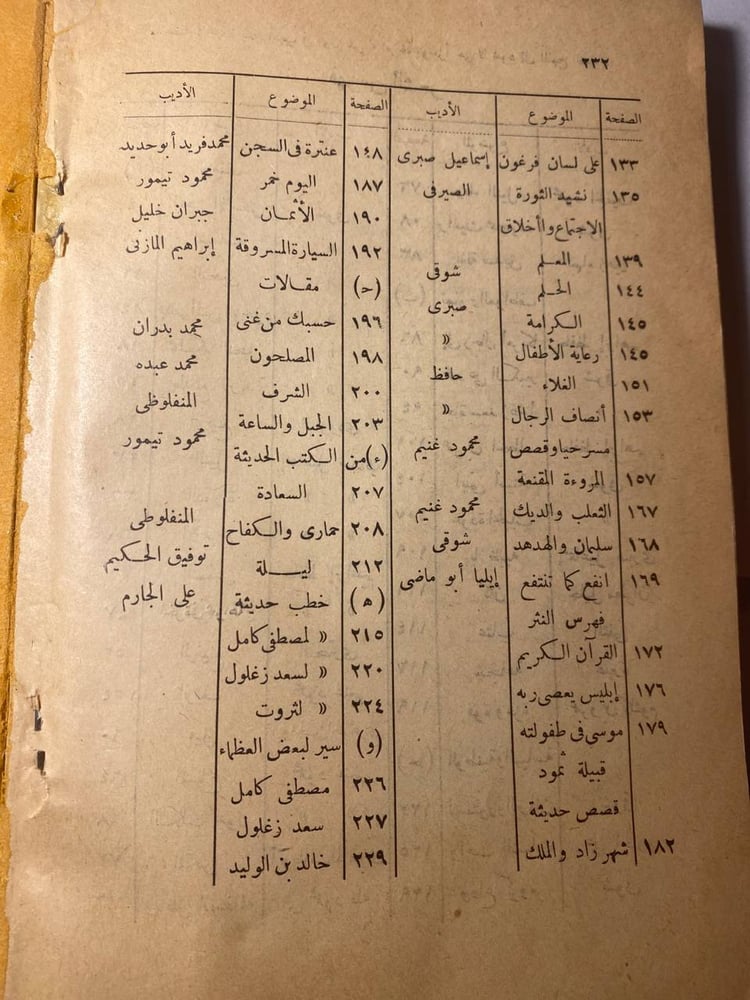 ٢٣٢
الصفحة الموضوع الأديب
١٣٣ على لسان فرغون إسماعيل صبرى
١٣٥ نشيد الثورة الصيرفى
الاجتماع واأخلاق
١٣٩ المعلم شوقى
١٤٤ الحلم صبرى
١٤٥ الكرامة »
١٤٥ رعاية الأطفال حافظ
١٥١ الغلاء »
١٥٣ أنصاف الرجال محمود غنيم
مسرحيا وقصص
١٥٧ المروءة المقنعة محمود غنيم
١٦٧ الثعلب والديك شوقى
١٦٨ سليمان والهدهد إيليا أبو ماضى
١٦٩ انفع كما تنتفع
فهرس النثر
١٧٢ القرآن الكريم
١٧٦ إبليس يعصى ربه
١٧٩ موسى فى طفولته
قبيلة ثمود
قصص حديثة
١٨٢ شهر زاد والملك
الصفحة الموضوع الأديب
١٤٨ عنترة فى السجن محمد فريد أبو حديد
١٨٧ اليوم خمر محمود تيمور
١٩٠ الأثمان جبران خليل
١٩٢ السيارة المسروقة إبراهيم المازنى
(ح) مقالات
١٩٦ حسبك من غنى محمد بدران
١٩٨ المصلحون محمد عبده
٢٠٠ الشرف المنفلوظى
٢٠٣ الجبل والساعة محمود تيمور
(ء) من الكتب الحديثة
٢٠٧ السعادة المنفلوطى
٢٠٨ حمارى والكفاح توفيق الحكيم
٢١٢ ليلة على الجارم
(ه) خطب حديثة
٢١٥ » لمصطفى كامل
٢٢٠ » لسعد زغلول
٢٢٤ » لثروت
(و) سير لبعض العظماء
٢٢٦ مصطفى كامل
٢٢٧ سعد زغلول
٢٢٩ خالد بن الوليد